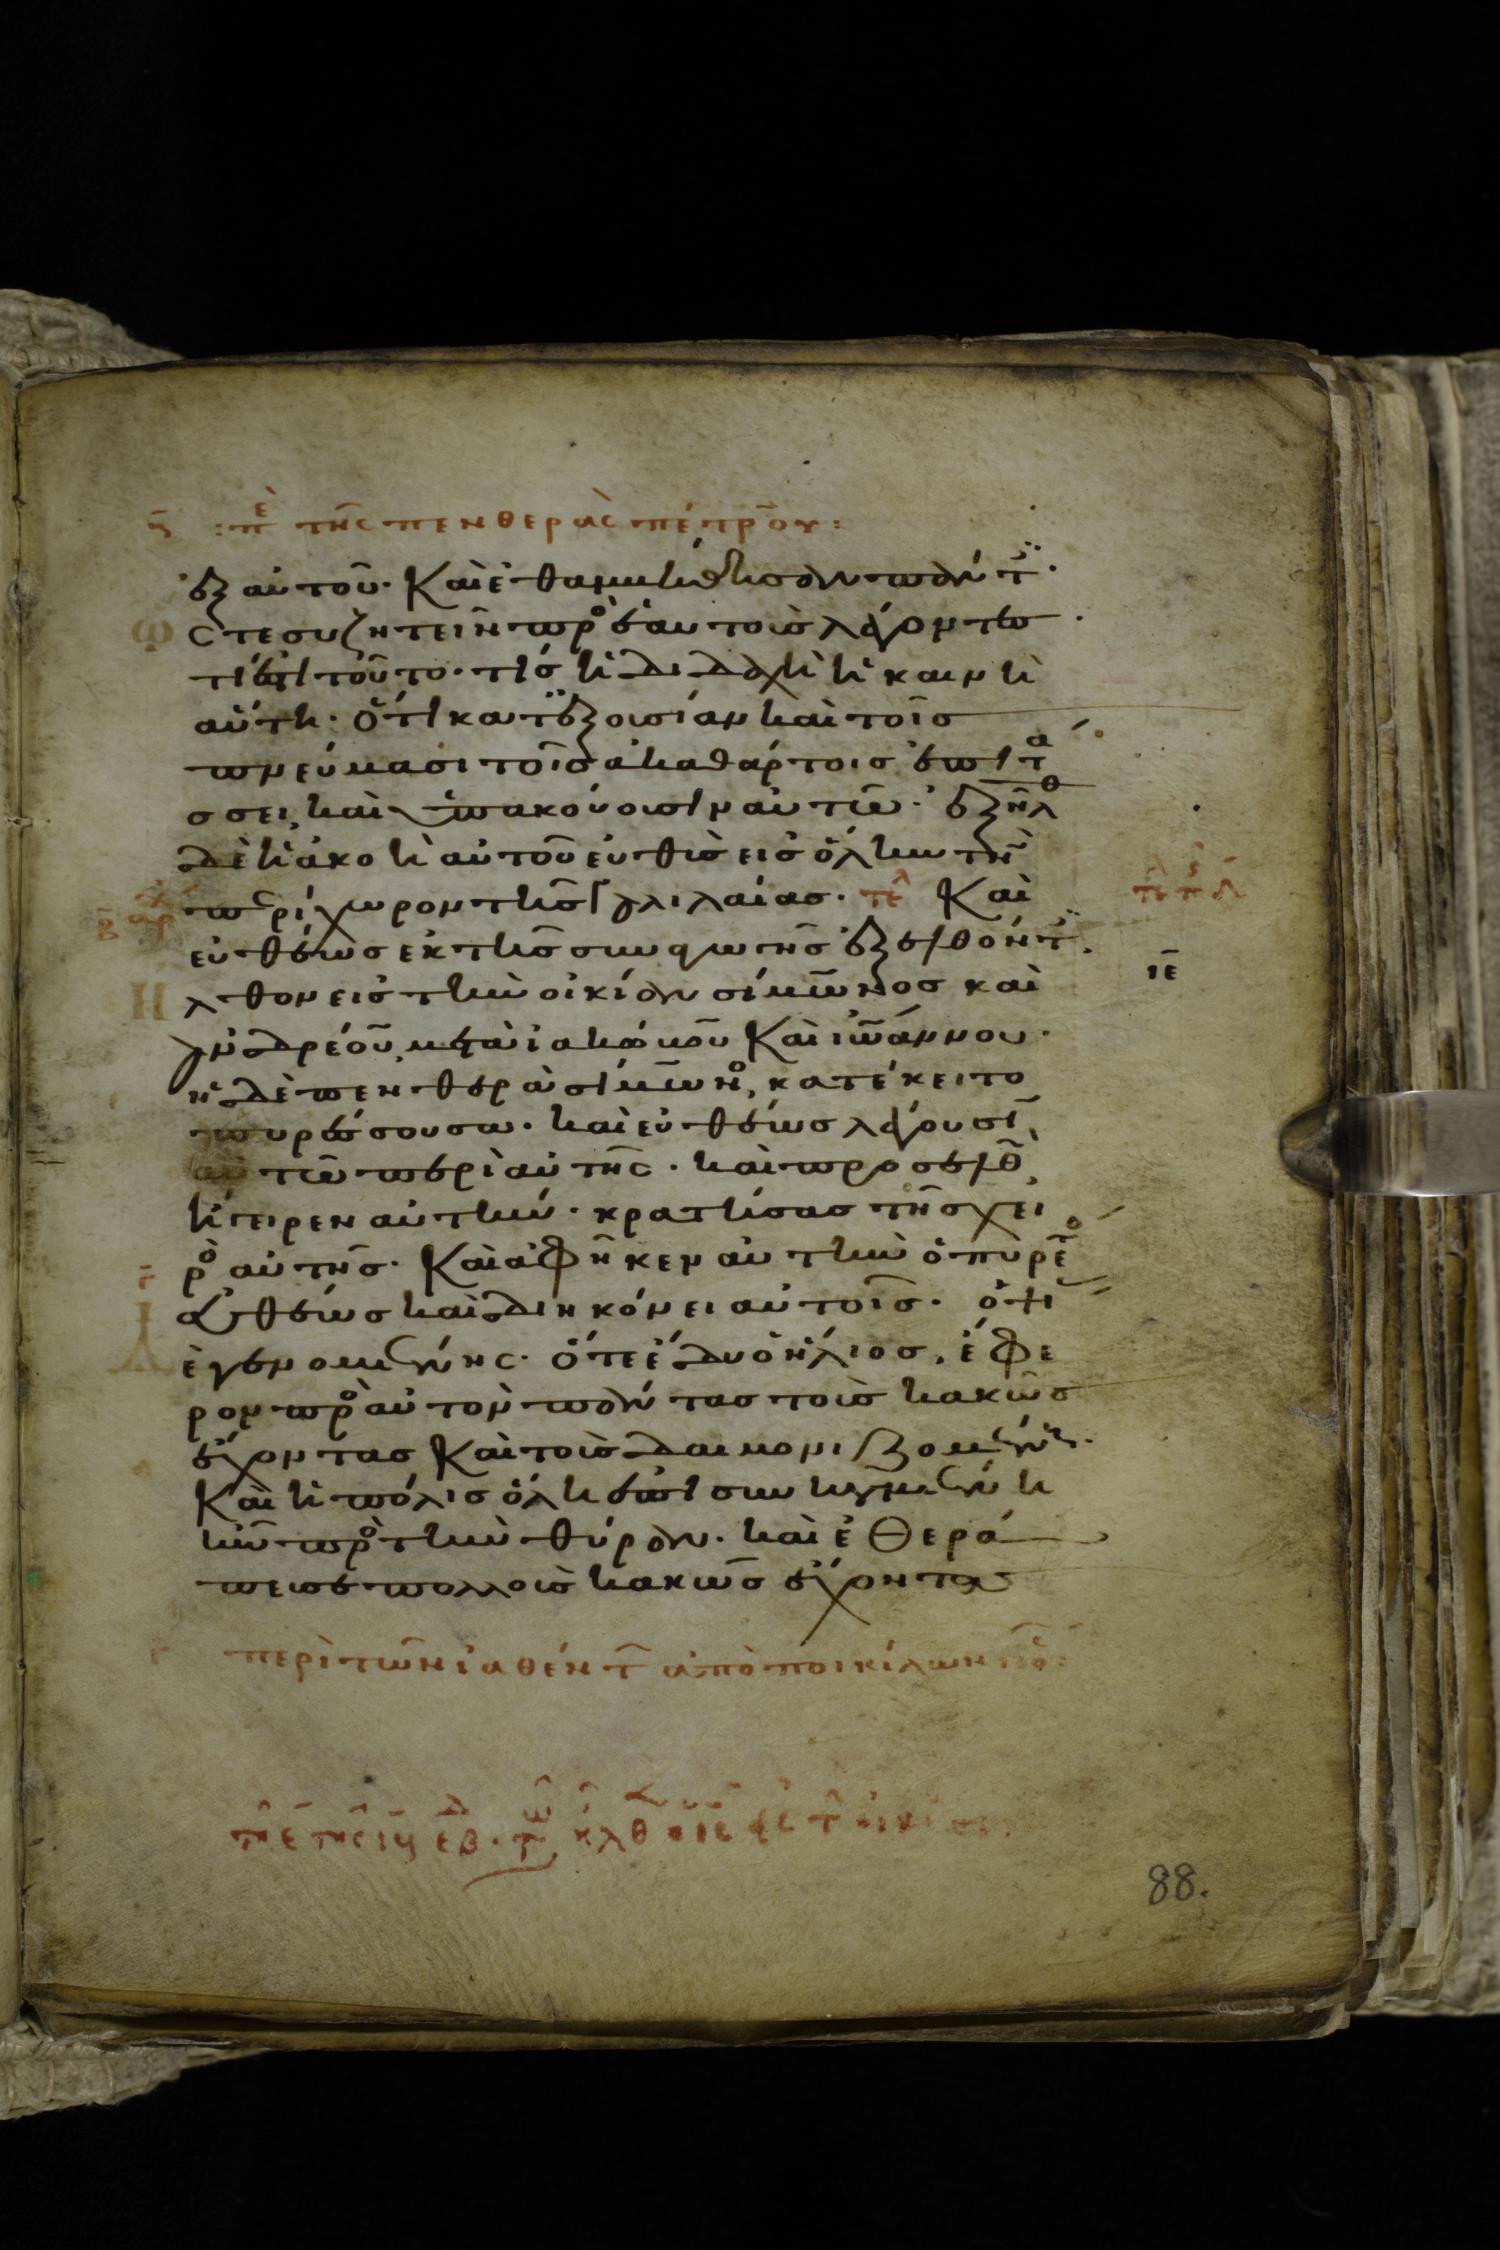 β̄ :πὲ τῆς πενθερᾶς πέτρου:
ἐξ αὐτοῦ. Καὶ ἐθαμβήθησαν πάντ̈.
Ω ςτε συζητεῖν πρὸ ἑαυτοὺς λέγοντασ.
τί ἐστι τοῦτο. τίσ ἡ διδαχὴ ἡ καινὴ
αὕτη. ὅτι κατ̈ ἐξουσίαν καὶ τοῖσ
πνεύμασι τοῖσ ἀκαθάρτοισ ἐπιτά
σσει, καὶ ὑπακούουσιν αὐτῶ. ἐξῆλθ
δὲ ἡ ἀκοὴ αὐτοῦ εὐθὺσ εἰσ ὅλην τὴν
περίχωρον τῆσ γαλιλαίασ. τελ Καὶ
εὐθέωσ ἐκ τῆσ συναγωγῆσ ἐξελθόντ̈.
Η λθον εἰσ τὴν οἰκίαν σίμωνοσ καὶ
ιε
ἀνδρέου, μετὰ ἰακώβου Καὶ ἰωάννου.
ἡ δὲ πενθερὰ σίμωνο, κατέκειτο
πυρέσσουσα. καὶ εὐθέωσ λέγουσι,
αὐτῶ περὶ αὐτῆς. καὶ προσελθ,
ἤγειρεν αὐτὴν. κρατήσασ τῆσ χει
ρὸ αὐτῆσ. Καὶ ἀφῆκεν αὐτὴν ὁ πυρετὸ
εὐθέωσ καὶ διηκόνει αὐτοῖσ. ὀψί
ασ γενομένης. ὅτε ἔδυ ὁ ἥλιοσ, ἔφε
ρον πρὸ αὐτὸν πάντασ τοὺσ κακῶσ
ἔχοντασ Καὶ τοὺσ δαιμονιζομένουσ.
Καὶ ἡ πόλισ ὅλη ἐπισυνηγμένη
ἦν πρὸ τὴν θύραν. καὶ ἐθερά
πευσε πολλοὺσ κακῶσ ἔχοντασ
περὶ τῶν ἰαθέντ̄ ἀπὸ ποικίλων νό:
88.